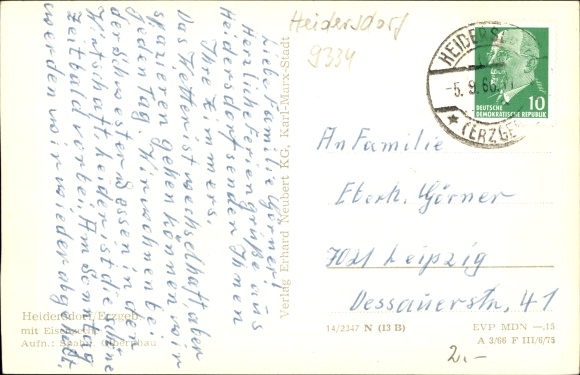 Heidersdorf
9334
Liebe Familie Görner!
Herzliche Feriengrüße aus
Heidersdorf senden Ihnen
Ihre Zimmers.
Das Wetter ist wechselhaft, aber
spazieren gehen können wir
jeden Tag. Wir wohnen bei
der Schwester u. essen in der
Wirtschaft. Leider ist die schöne
Zeit bald vorbei. Am Sonntag
werden wir wieder abgeholt.
Heidersdorf/Erzgeb.
mit
Aufn.: Olbernhau
Verlag Erhard Neubert KG, Karl-Marx-Stadt
HEIDERS
-5.9.66
(ERZGEB
DEUTSCHE
DEMOKRATISCHE REPUBLIK
10
An Familie
Eberh. Görner
7021 Leipzig
Dessauerstr. 41
14/2347 N (13 B)
EVP MDN —,15
A 3/66 F III/6/75
2.-